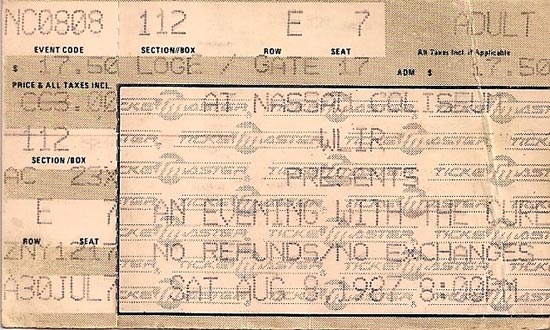 NC0808 112 E 7 ADULT
EVENT CODE SECTION/BOX ROW SEAT All Taxes Incl. if Applicable
$ 17.50 LOGE / GATE 17 ADM $ 17.50
PRICE & ALL TAXES INCL.
CG3.00 AT NASSAU COLISEUM
112 WLIR
SECTION/BOX
AC 23X PRESENTS
E 7 AN EVENING WITH THE CURE
ROW SEAT
ZNY1217 NO REFUNDS/NO EXCHANGES
A30JUL7 SAT AUG 8 1987 8:00PM
TICKETMASTER